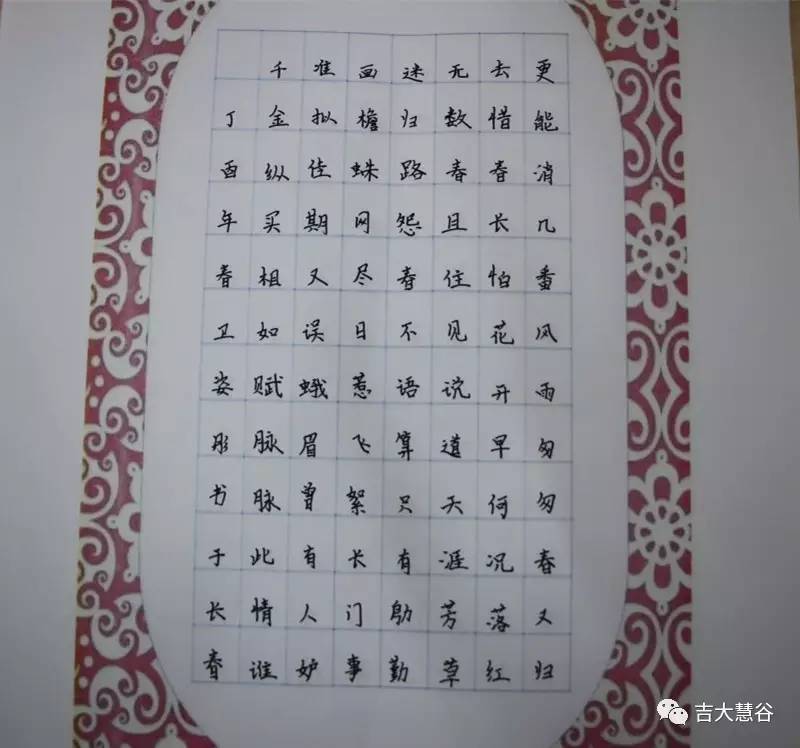 更能消几番风雨匆匆春又归
去惜春长怕花开早何况落红
无数春且住见说道天涯芳草
迷归路怨春不语算只有殷勤
画檐蛛网尽日惹飞絮长门事
准拟佳期又误蛾眉曾有人妒
千金纵买相如赋脉脉此情谁
丁酉年春卫姿彤书于长春
吉大慧谷